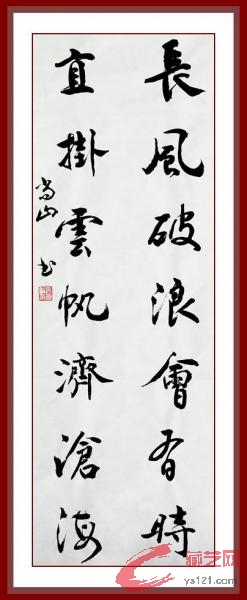 長風破浪會有時
直掛雲帆濟滄海
尚山書
藏艺网
ys121.com